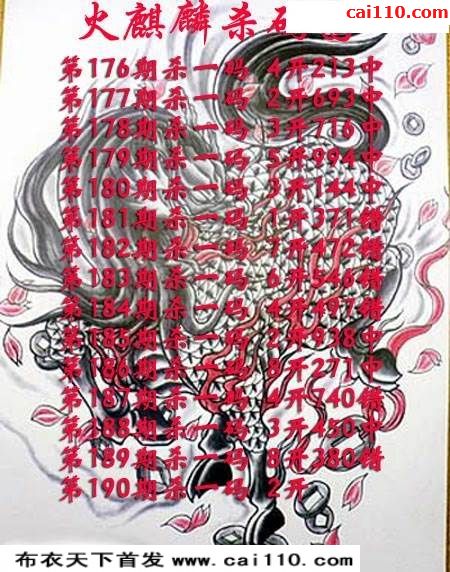 cai110.com
火麒麟杀码图
第176期杀一码 4开213中
第177期杀一码 2开693中
第178期杀一码 3开716中
第179期杀一码 5开994中
第180期杀一码 3开144中
第181期杀一码 1开371错
第182期杀一码 7开472错
第183期杀一码 6开546错
第184期杀一码 4开497错
第185期杀一码 2开938中
第186期杀一码 8开271中
第187期杀一码 4开740错
第188期杀一码 3开450中
第189期杀一码 8开380错
第190期杀一码 2开
布衣天下首发 www.cai110.com